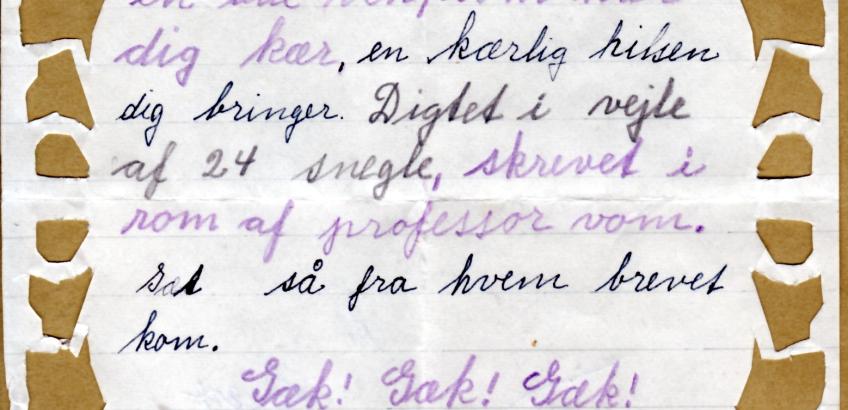 dig kær, en kærlig hilsen
dig bringer. Digtet i vejle
af 24 snegle, skrevet i
rom af professor vom.
Gæt så fra hvem brevet
kom.
Gæk! Gæk! Gæk!